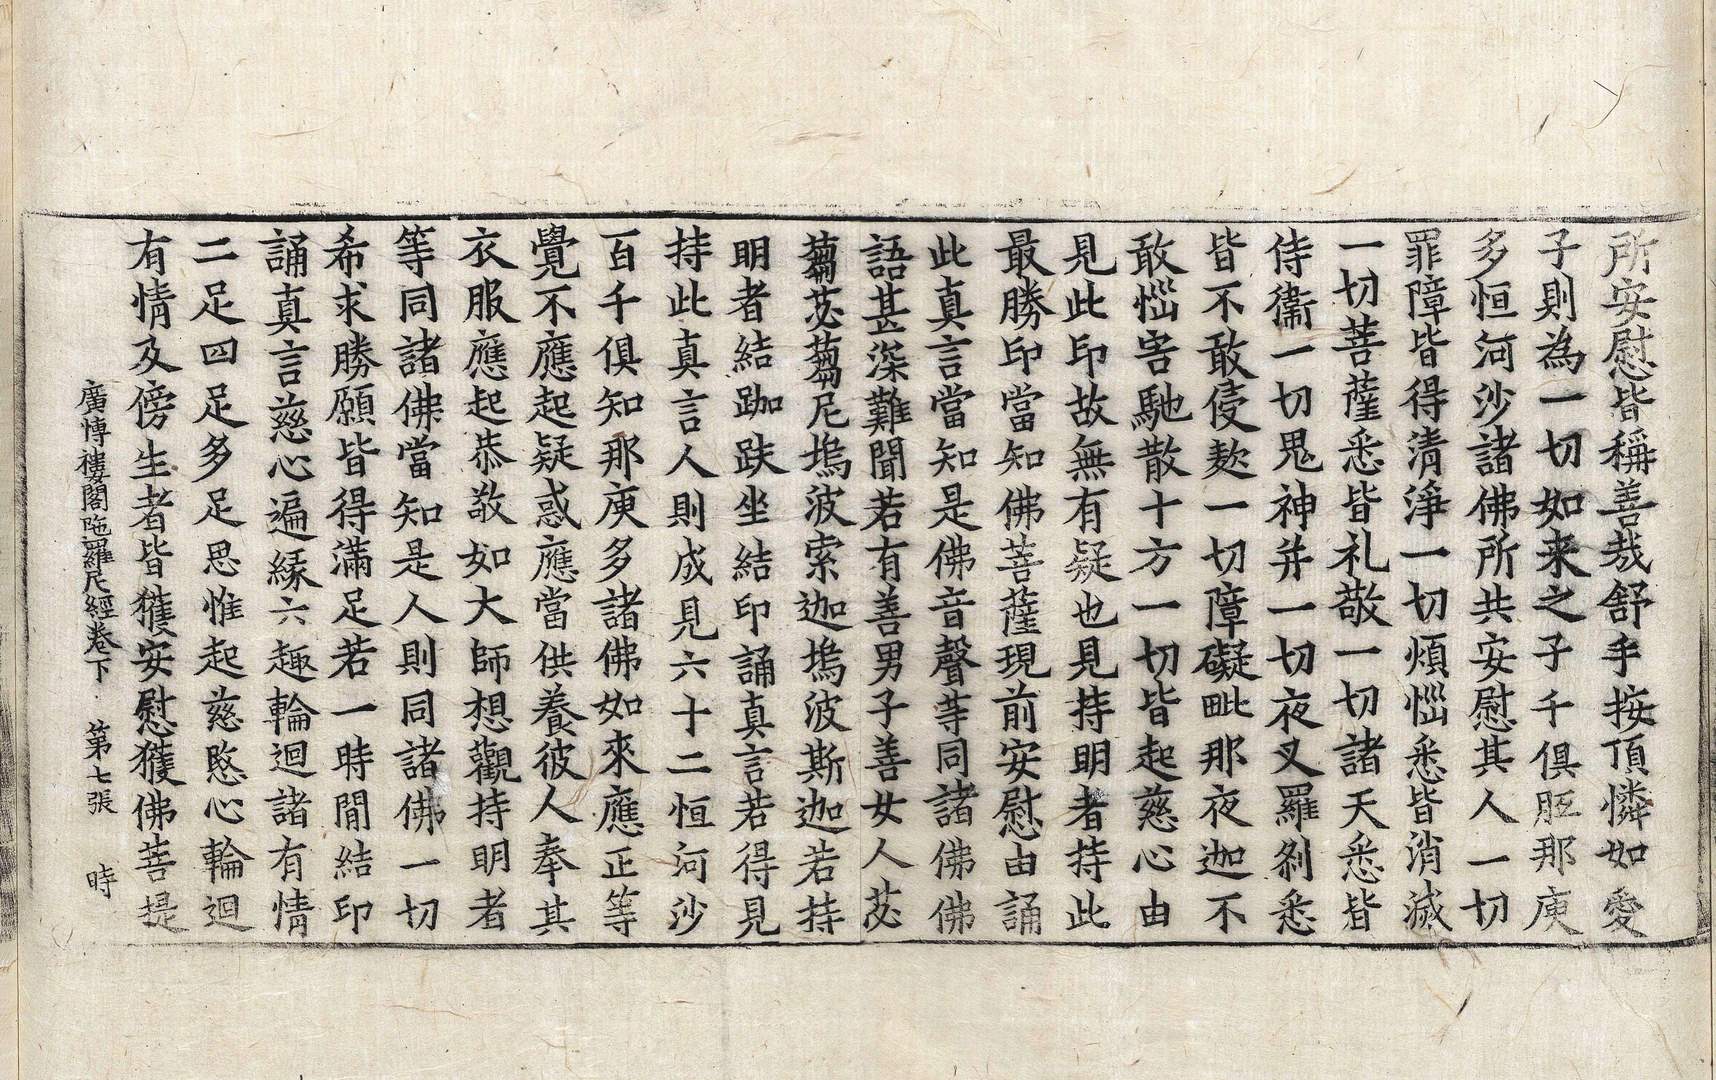 所安慰皆稱善哉舒手按頂憐如愛
子則為一切如来之子千俱胝那庾
多恒河沙諸佛所共安慰其人一切
罪障皆得清淨一切煩惱悉皆消滅
一切菩薩悉皆礼敬一切諸天悉皆
侍衞一切鬼神并一切夜叉羅剎悉
皆不敢侵欺一切障礙毗那夜迦不
敢惱害馳散十方一切皆起慈心由
見此印故無有疑也見持明者持此
最勝印當知佛菩薩現前安慰由誦
此真言當知是佛音聲等同諸佛佛
語甚深難聞若有善男子善女人苾
蒭苾蒭尼塢波索迦塢波斯迦若持
明者結跏趺坐結印誦真言若得見
持此真言人則成見六十二恒河沙
百千俱知那庾多諸佛如來應正等
覺不應起疑惑應當供養彼人奉其
衣服應起恭敬如大師想觀持明者
等同諸佛當知是人則同諸佛一切
希求勝願皆得滿足若一時間結印
誦真言慈心遍緣六趣輪迴諸有情
二足四足多足思惟起慈愍心輪迴
有情及傍生者皆獲安慰獲佛菩提
廣博樓閣陁羅尼經卷下 第七張 時